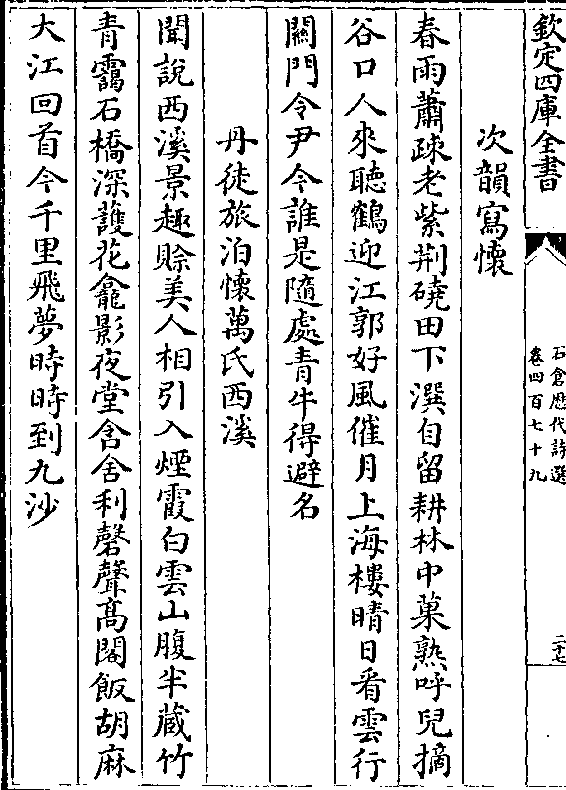 欽定四庫全書
石倉歷代詩選
卷四百七十九
二十七
次韻寫懷
春雨蕭疎老紫荆磽田下潠自留耕林中菓熟呼兒摘
谷口人來聽鶴迎江郭好風催月上海樓晴日看雲行
關門令尹今誰是隨處青牛得避名
丹徒旅泊懷萬氏西溪
聞說西溪景趣賒美人相引入煙霞白雲山腹半藏竹
青靄石橋深護花龕影夜堂含舍利磬聲髙閣飯胡麻
大江回首今千里飛夢時時到九沙